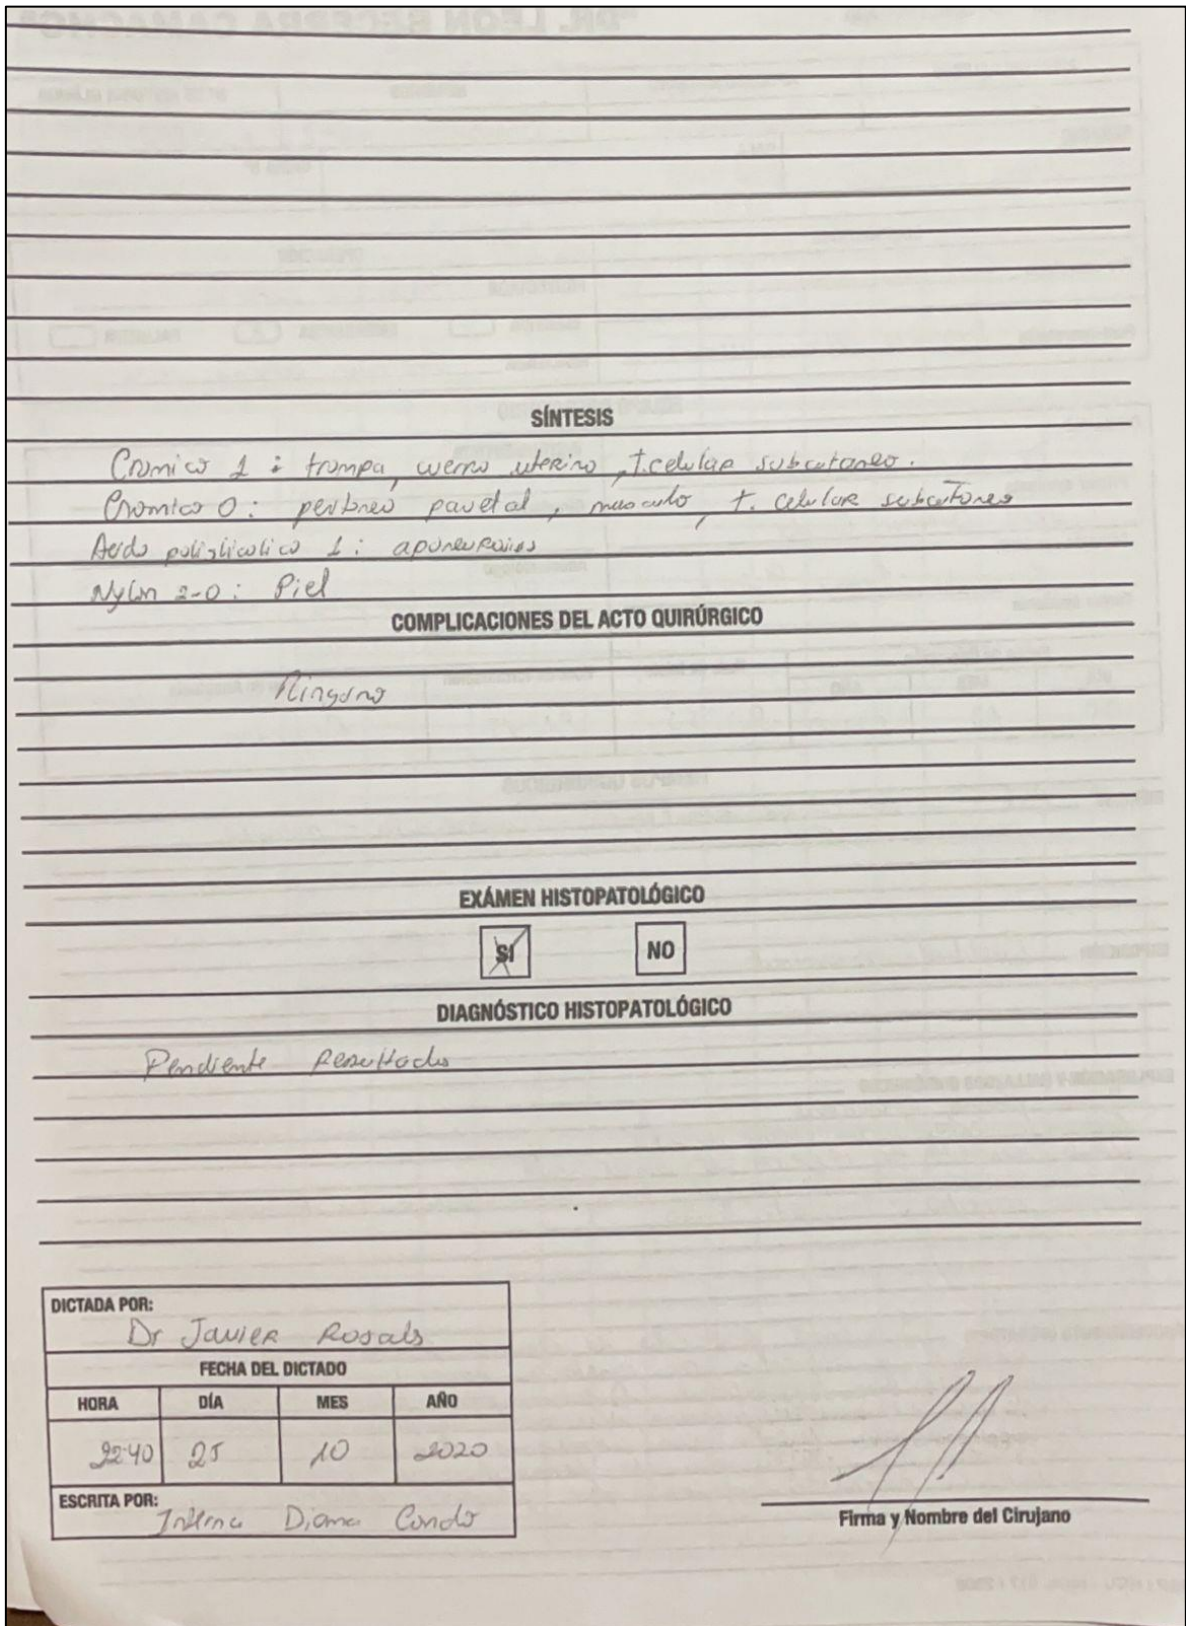 SÍNTESIS
Cromico 1 : trompa, cuerno uterino, t. celular subcutaneo.
Cromico 0 : peritoneo parietal, musculo, t. celular subcutaneo
Acido poliglicolico 1 : aponeurosis
Nylon 2-0 : Piel
COMPLICACIONES DEL ACTO QUIRÚRGICO
Ninguna
EXÁMEN HISTOPATOLÓGICO
SI NO
DIAGNÓSTICO HISTOPATOLÓGICO
Pendiente Resultado
DICTADA POR:
Dr Javier Rosals
FECHA DEL DICTADO
HORA DÍA MES AÑO
22:40 25 10 2020
ESCRITA POR:
Interna Diana Condo
Firma y Nombre del Cirujano